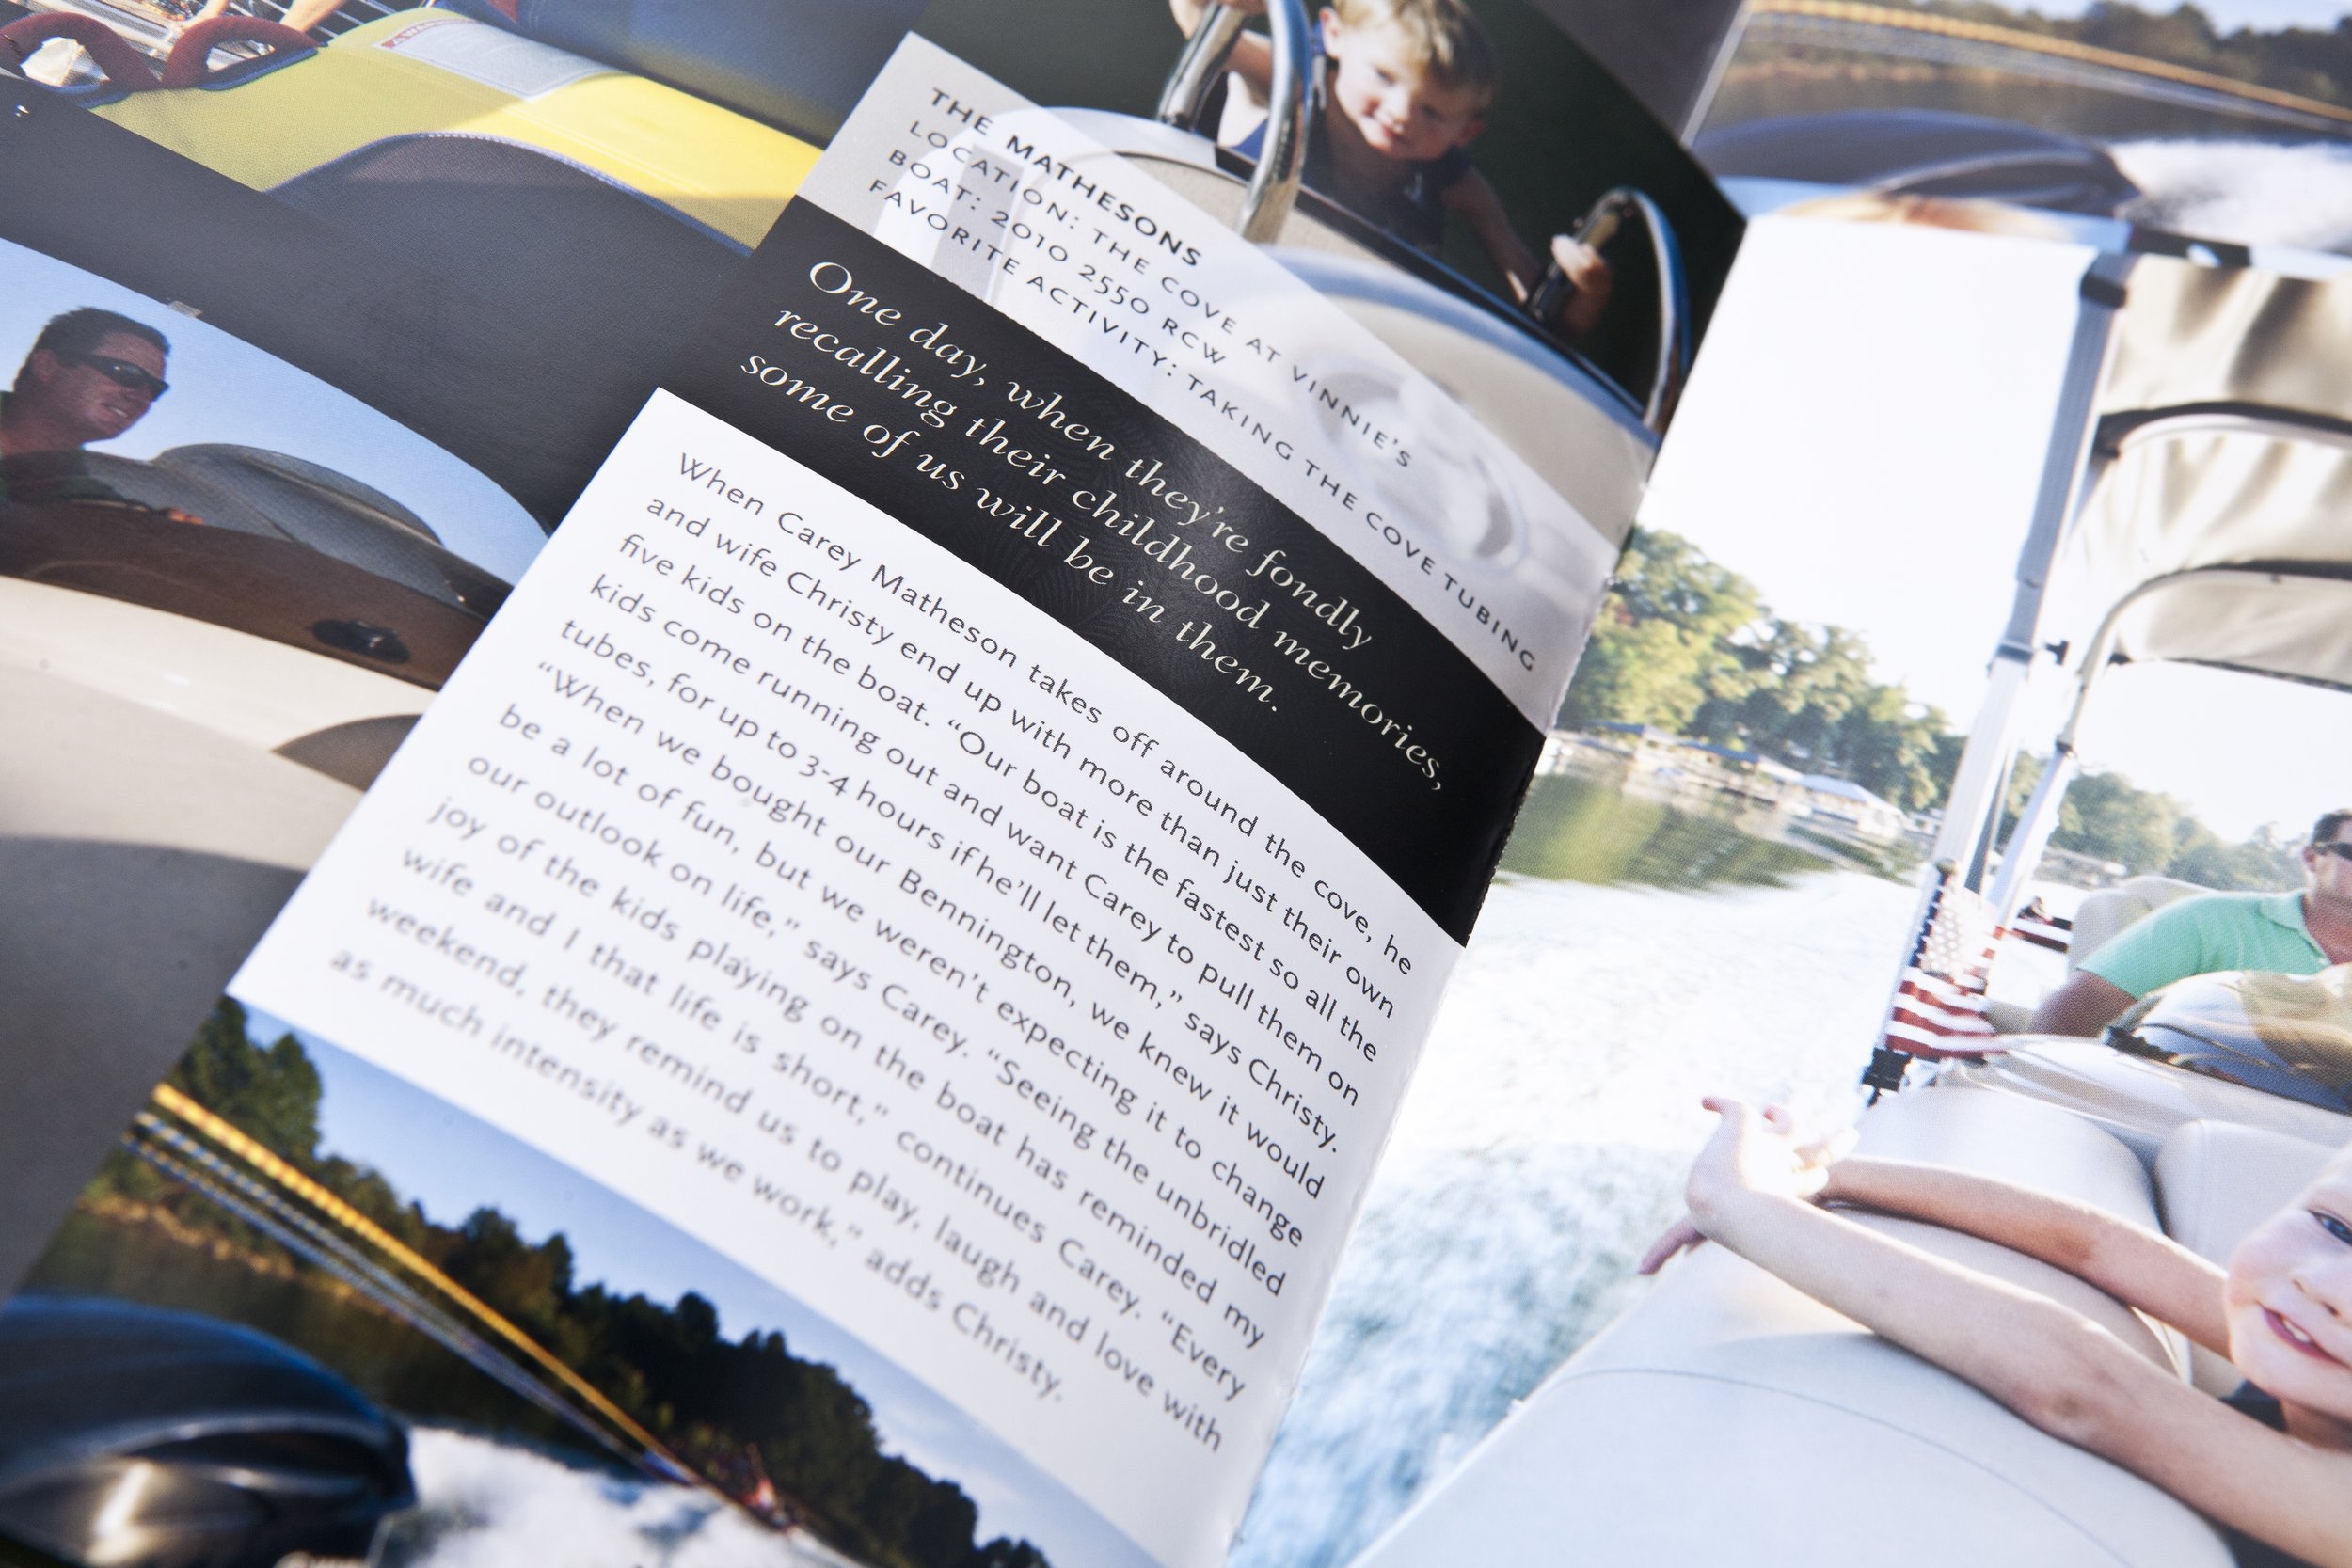 THE MATHESONS
LOCATION: THE COVE AT VINNIE'S
BOAT: 2010 2550 RCW
FAVORITE ACTIVITY: TAKING THE COVE TUBING
One day, when they're fondly
recalling their childhood memories,
some of us will be in them.
When Carey Matheson takes off around the cove, he
and wife Christy end up with more than just their own
five kids on the boat. “Our boat is the fastest so all the
kids come running out and want Carey to pull them on
tubes, for up to 3-4 hours if he'll let them,” says Christy.
“When we bought our Bennington, we knew it would
be a lot of fun, but we weren't expecting it to change
our outlook on life,” says Carey. “Seeing the unbridled
joy of the kids playing on the boat has reminded my
wife and I that life is short,” continues Carey. “Every
weekend, they remind us to play, laugh and love with
as much intensity as we work,” adds Christy.